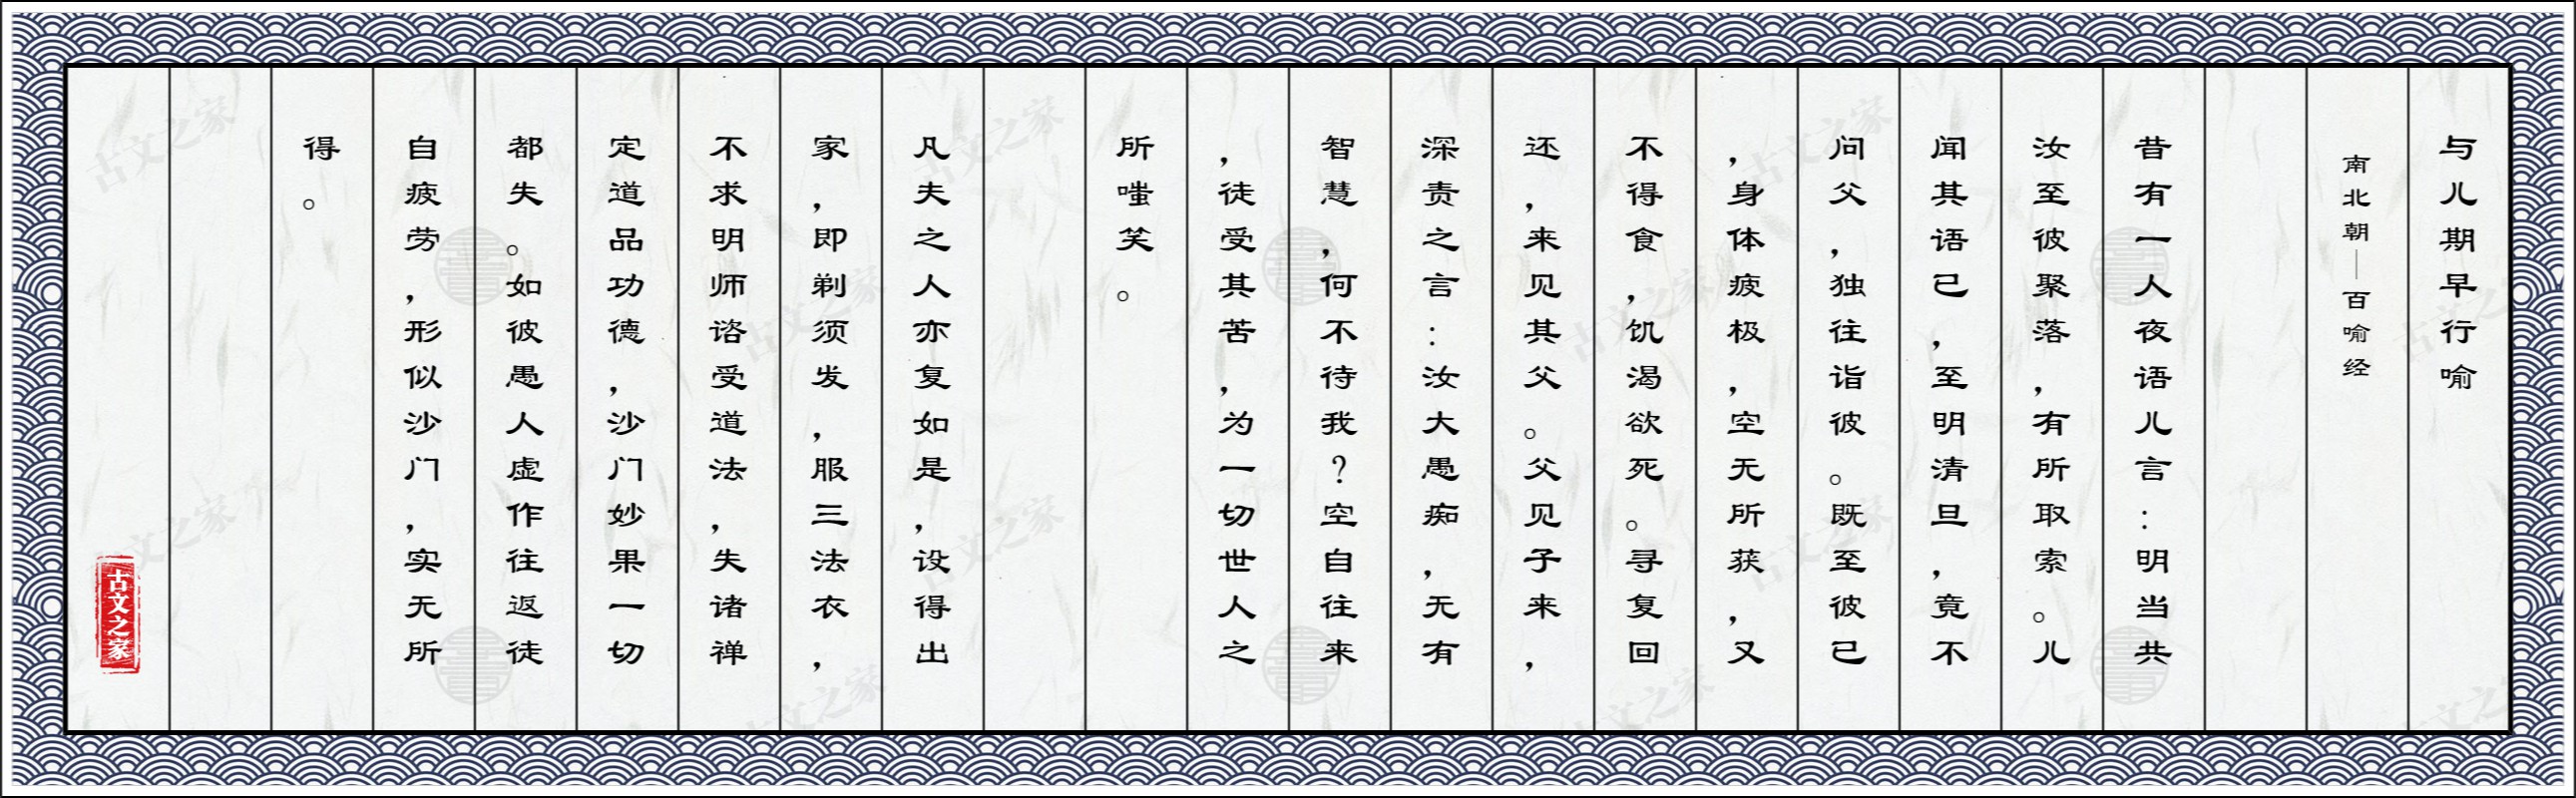 与儿期早行喻
南北朝—百喻经
昔有一人夜语儿言：明当共
汝至彼聚落，有所取索。儿
闻其语已，至明清旦，竟不
问父，独往诣彼。既至彼已
，身体疲极，空无所获，又
不得食，饥渴欲死。寻复回
还，来见其父。父见子来，
深责之言：汝大愚痴，无有
智慧，何不待我？空自往来
，徒受其苦，为一切世人之
所嗤笑。
凡夫之人亦复如是，设得出
家，即剃须发，服三法衣，
不求明师谘受道法，失诸禅
定道品功德，沙门妙果一切
都失。如彼愚人虚作往返徒
自疲劳，形似沙门，实无所
得。
古文之家